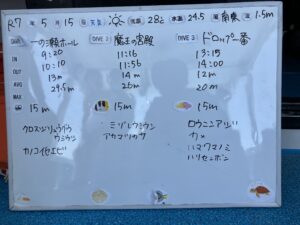 R7 年 5 月 15 日 天気 気温 28℃ 水温 24.5 風 南東 1.5m
DIVE 1 一の瀬ホール DIVE 2 魔王の宮殿 DIVE 3 ドロップ一番
IN 9:20 11:16 13:15
OUT 10:10 11:56 14:00
AVE 13m 14m 12m
MAX 24.5m 26m 20m
15m 15m 15m
クロスジリュウグウウミウシ
カノコイセエビ
ミゾレウミウシ
アカマツカサ
ロウニンアジ
カメ
ハマクマノミ
ハリセンボン